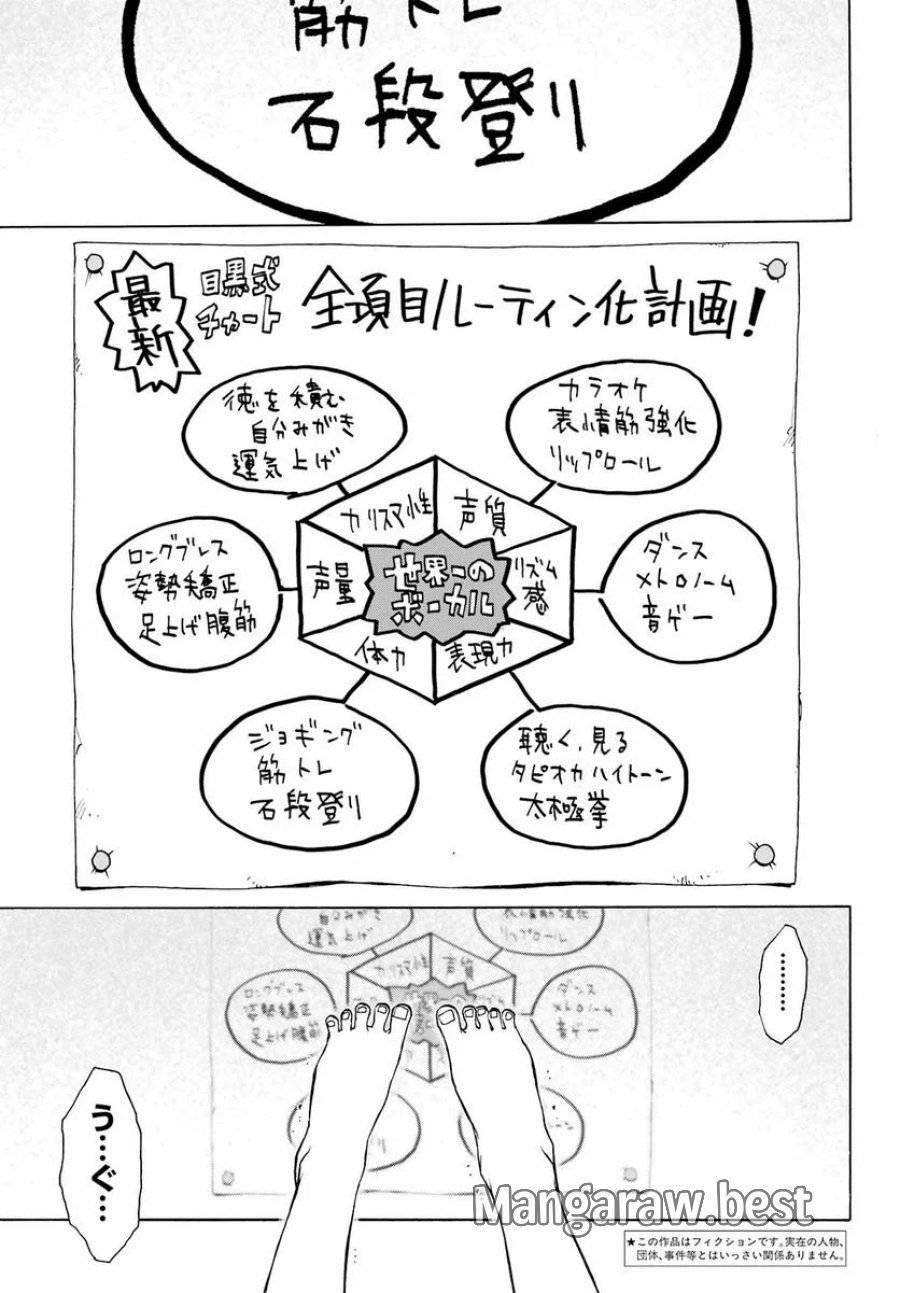 筋トレ
石段登り
最新
目黒式
チャート
全項目ルーティン化計画!
徳を積む
自分みがき
運気上げ
カラオケ
表情筋強化
リップロール
カリスマ性
声質
ロングブレス
姿勢矯正
足上げ腹筋
声量
世界一の
ボーカル
リズム
感
ダンス
メトロノーム
音ゲー
体力
表現力
ジョギング
筋トレ
石段登り
聴く、見る
タピオカハイトーン
太極拳
自分みがき
運気上げ
表情筋強化
リップロール
カリスマ性
声質
ロングブレス
姿勢矯正
足上げ腹筋
ダンス
メトロノーム
音ゲー
………
う…ぐ…
Mangaraw.best
★この作品はフィクションです。実在の人物、
団体、事件等とはいっさい関係ありません。